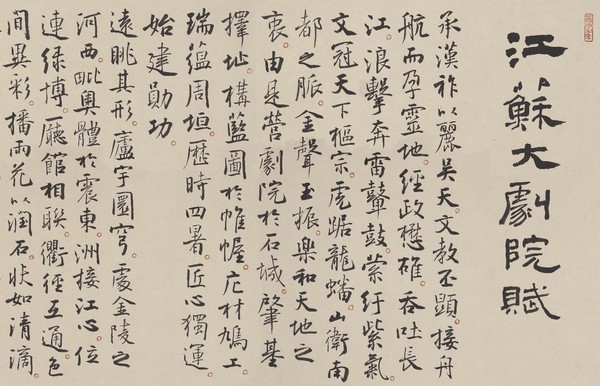 江蘇大劇院賦
承漢祚以麗吳天文教丕顯接舟
航而孕靈地經政懋雄吞吐長
江浪擊奔雷鼙鼓縈紆紫氣
文冠天下樞宗虎踞龍蟠山衛南
都之脈金聲玉振樂和天地之
衷由是營劇院於石城肇基
擇址構藍圖於帷幄庀材鳩工
瑞蘊周垣歷時四暑匠心獨運
始建勛功
遠眺其形廬宇圜穹處金陵之
河西毗輿體於震東洲接江心位
連綠博廳館相聯衢徑互通色
間異彩播雨花以潤石狀如清滴